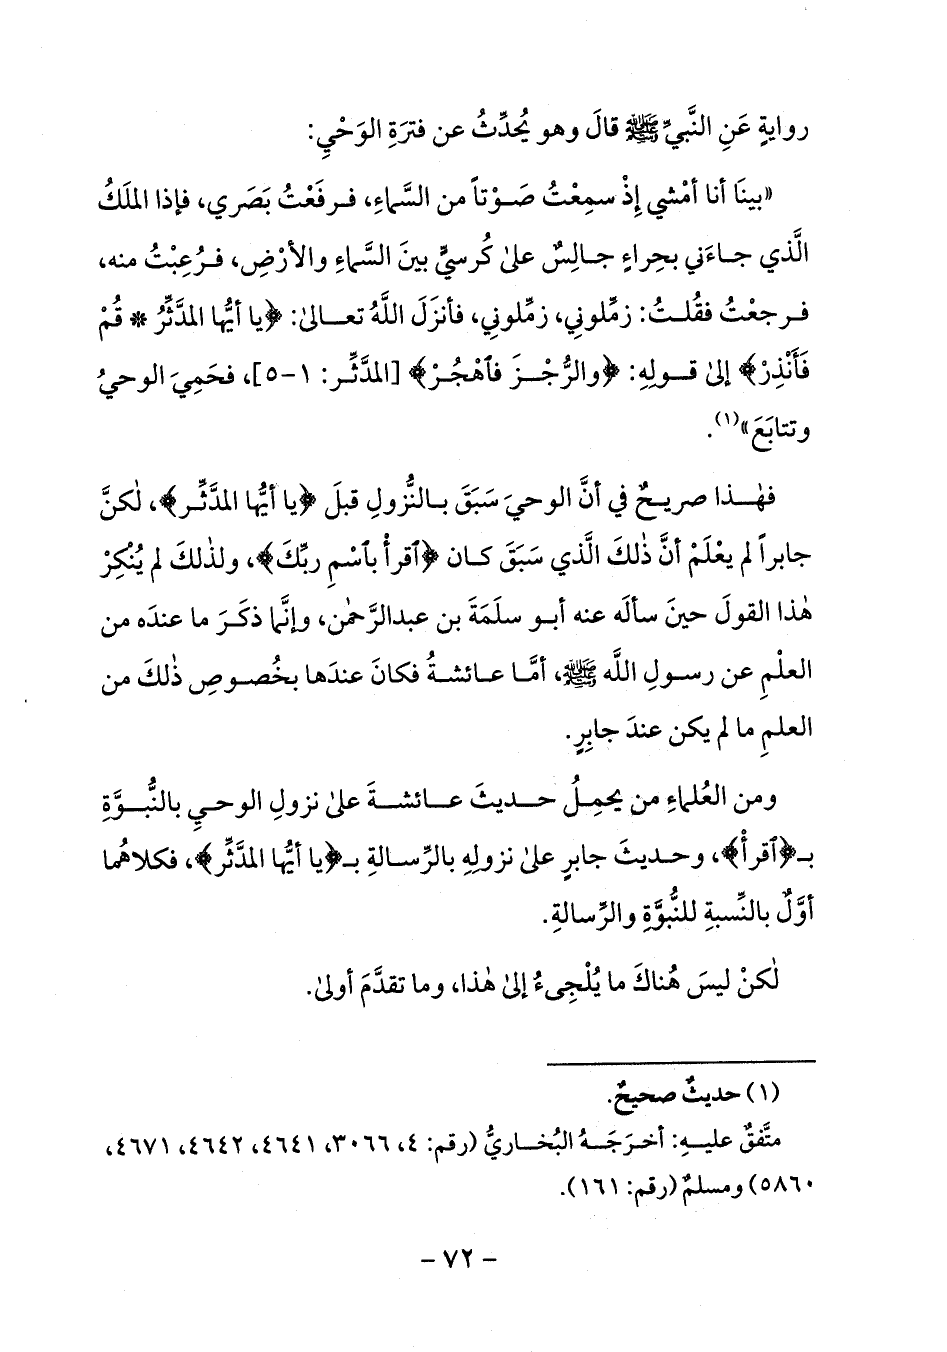 روايةٍ عَنِ النَّبيِّ ﷺ قالَ وهو يُحدِّثُ عن فترَةِ الوَحْيِ:
«بينَا أنا أمْشي إِذْ سمِعْتُ صَوْتاً من السَّماءِ، فرفَعْتُ بَصَري، فإذا الملَكُ
الَّذي جاءَني بحِراءٍ جالِسٌ علىٰ كُرسيٍّ بينَ السَّماءِ والأرْضِ، فرُعِبْتُ منه،
فرجعْتُ فقُلتُ: زمِّلوني، زمِّلوني، فأنزَلَ اللَّهُ تعالىٰ: ﴿يا أيُّها المدَّثِّرُ * قُمْ
فَأَنْذِرْ﴾ إلىٰ قولِهِ: ﴿والرُّجْزَ فٱهْجُرْ﴾ [المدَّثِّر: ١-٥]، فحَمِيَ الوحيُ
وتتابَعَ»(١).
فهٰذا صريحٌ في أنَّ الوحيَ سَبَقَ بالنُّزولِ قبلَ ﴿يا أيُّها المدَّثِّر﴾، لٰكنَّ
جابراً لم يعْلَمْ أنَّ ذٰلكَ الَّذي سَبَقَ كان ﴿ٱقرأْ بٱسْمِ ربِّكَ﴾، ولذٰلكَ لم يُنْكِرْ
هٰذا القولَ حينَ سألَه عنه أبو سلَمَةَ بن عبدالرَّحمٰن، وإنَّما ذكَرَ ما عندَه من
العلْمِ عن رسولِ اللَّه ﷺ، أمَّا عائشةُ فكانَ عندَها بخُصوصِ ذٰلكَ من
العلمِ ما لم يكن عندَ جابِرٍ.
ومن العُلماءِ من يحمِلُ حديثَ عائشةَ علىٰ نزولِ الوحيِ بالنُّبوَّةِ
بـ﴿ٱقرأْ﴾، وحديثَ جابرٍ علىٰ نزولِهِ بالرِّسالةِ بـ﴿يا أيُّها المدَّثِّر﴾، فكلاهُما
أوَّلٌ بالنِّسبةِ للنُّبوَّةِ والرِّسالةِ.
لٰكنْ ليسَ هُناكَ ما يُلْجِىءُ إلىٰ هٰذا، وما تقدَّمَ أولىٰ.
(١) حديثٌ صحيحٌ.
متَّفقٌ عليهِ: أخرَجَهُ البُخاريُّ (رقم: ٤، ٣٠٦٦، ٤٦٤١، ٤٦٤٢، ٤٦٧١،
٥٨٦٠) ومسلمٌ (رقم: ١٦١).
- ٧٢ -